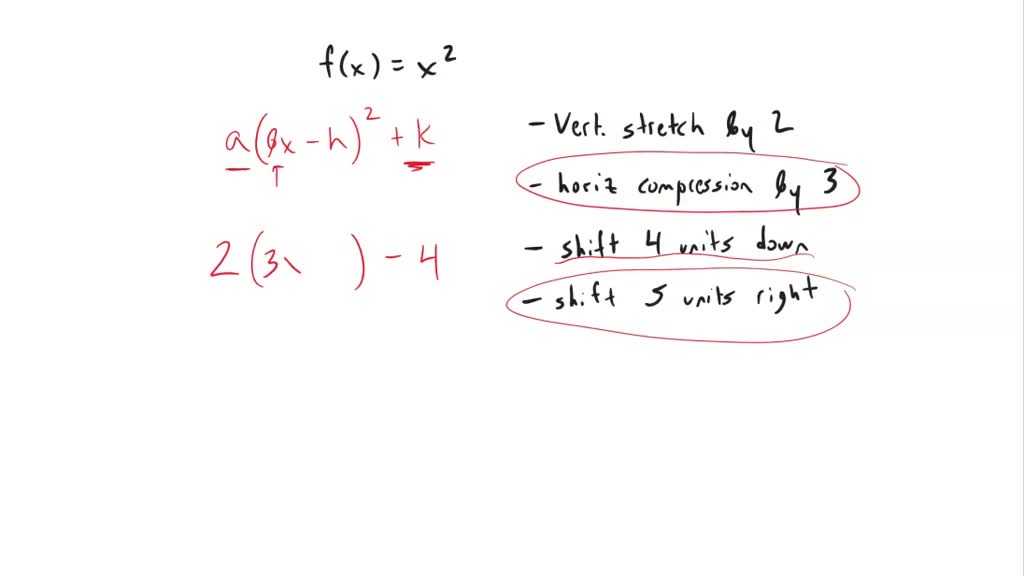 f(x) = x²
a(bx - h)² + k
- Vert. stretch by 2
- horiz compression by 3
2(3x ) - 4
- shift 4 units down
- shift 5 units right